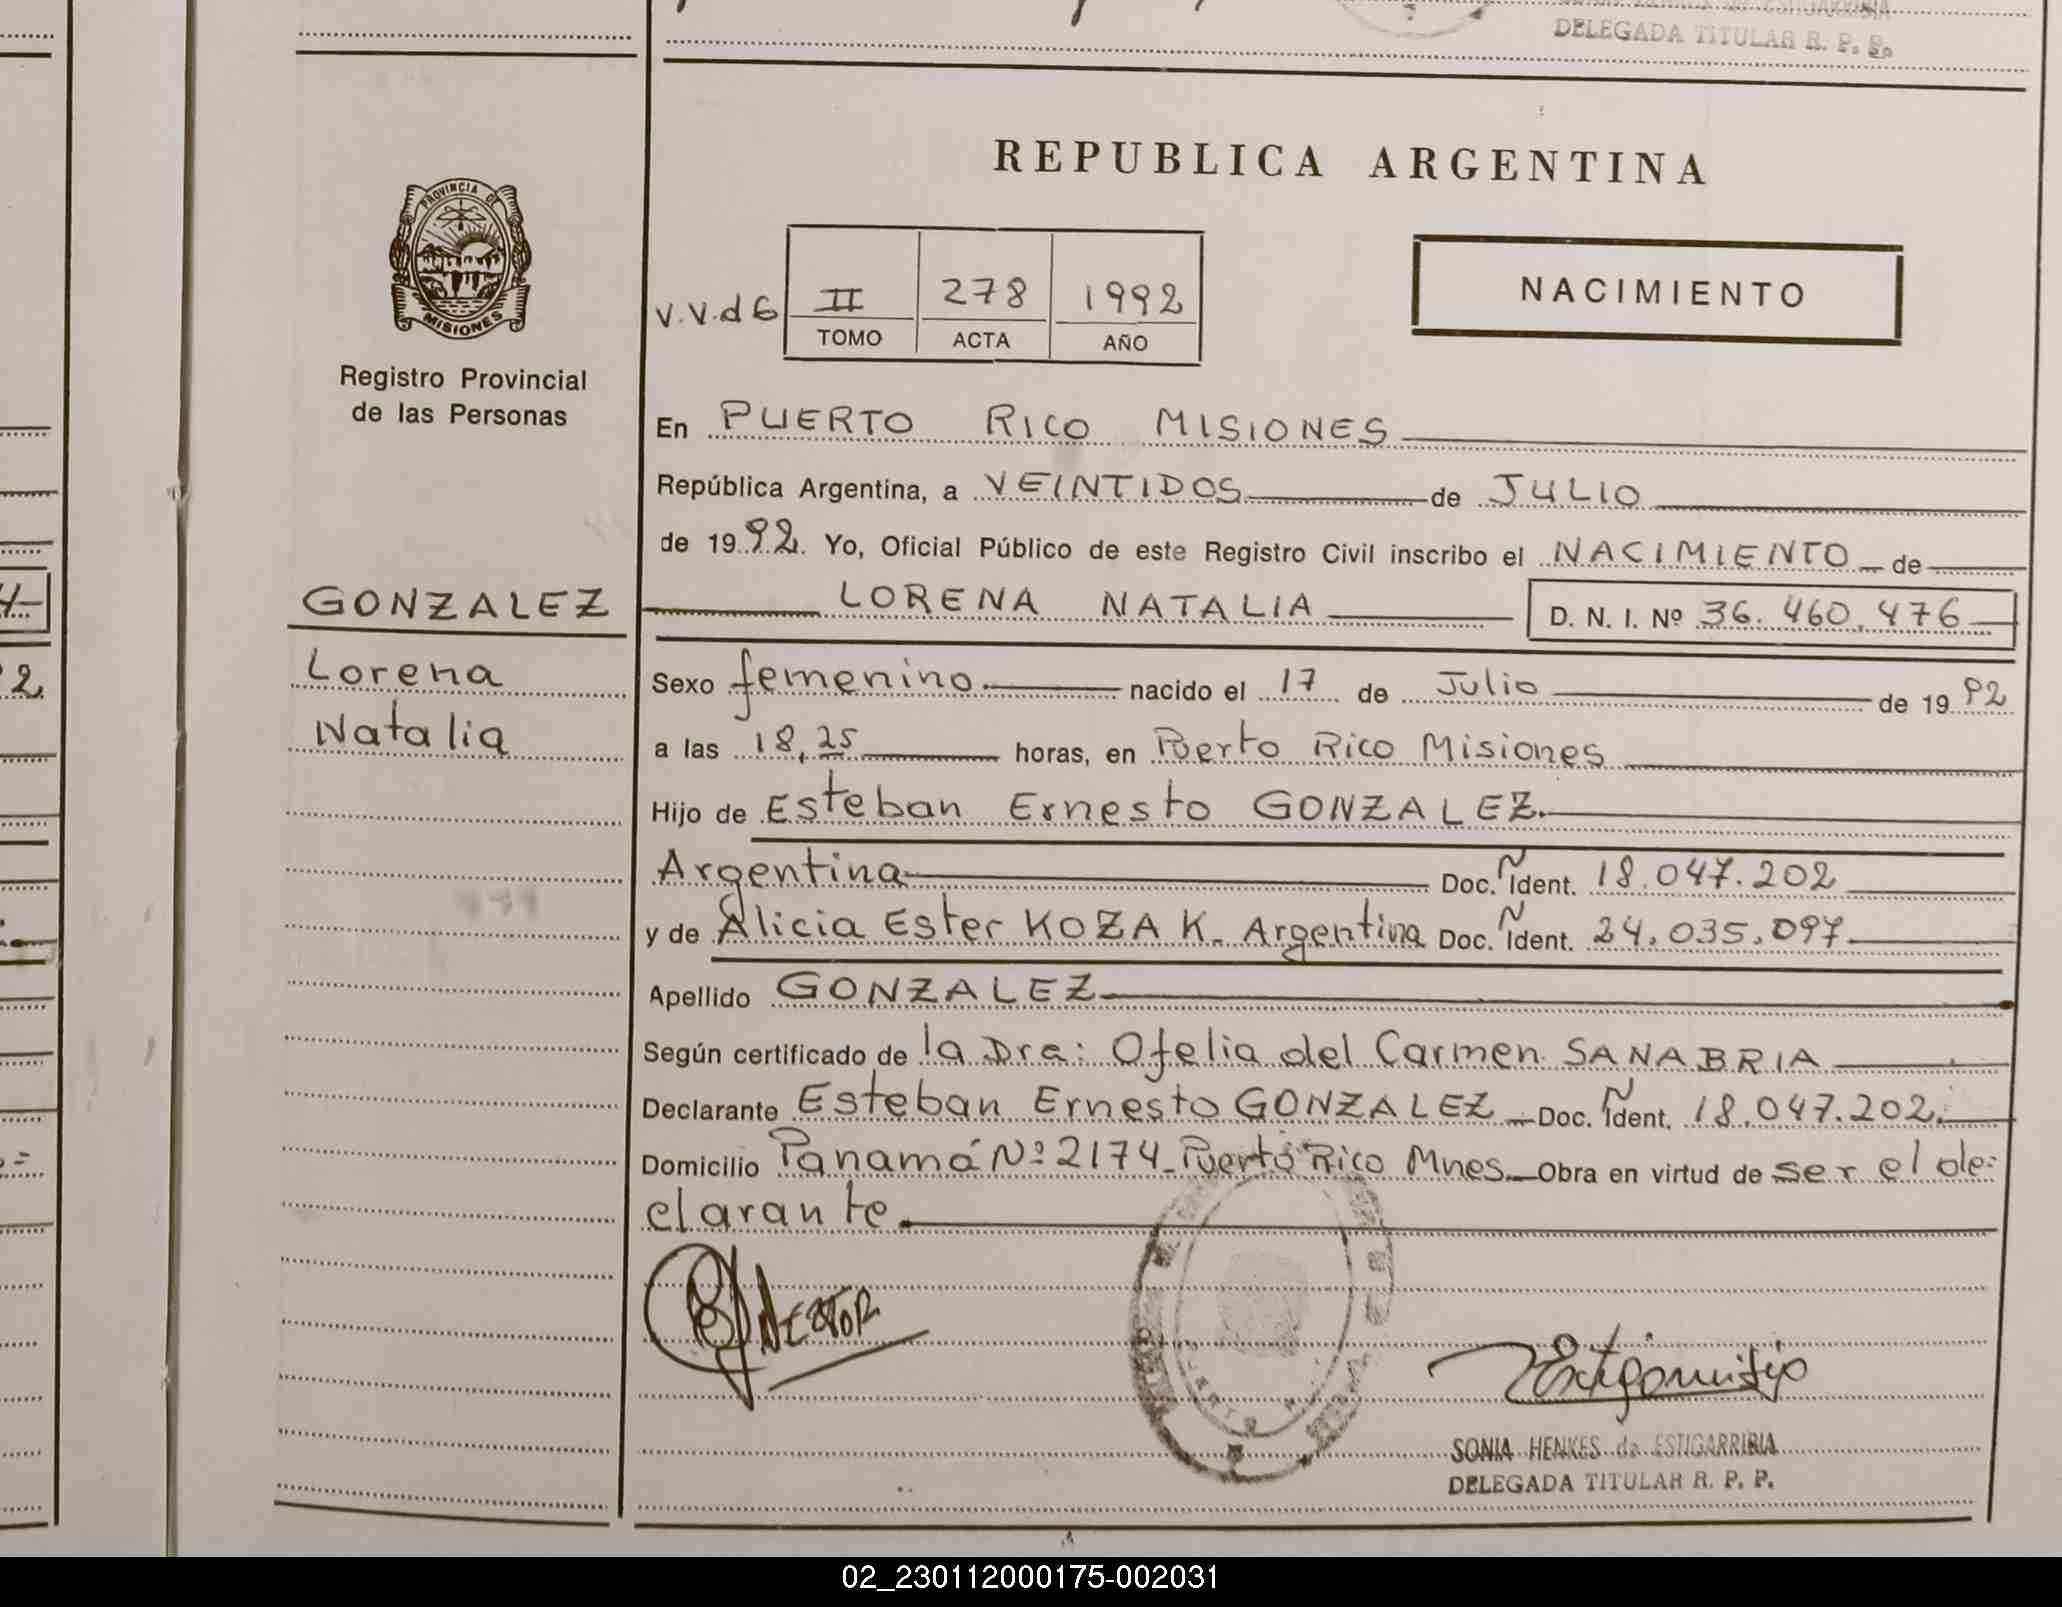 DELEGADA TITULAR R. P. P.
PROVINCIA DE
MISIONES
Registro Provincial
de las Personas
GONZALEZ
Lorena
Natalia
REPUBLICA ARGENTINA
V.V.d6 II 278 1992
TOMO ACTA AÑO
NACIMIENTO
En PUERTO RICO MISIONES
República Argentina, a VEINTIDOS de JULIO
de 1992. Yo, Oficial Público de este Registro Civil inscribo el NACIMIENTO de
LORENA NATALIA D. N. I. Nº 36.460.476
Sexo femenino nacido el 17 de Julio de 1992
a las 18,25 horas, en Puerto Rico Misiones
Hijo de Esteban Ernesto GONZALEZ.
Argentina Doc. Ñ Ident. 18.047.202
y de Alicia Ester KOZAK. Argentina Doc. Ñ Ident. 24.035.097
Apellido GONZALEZ
Según certificado de la Dra: Ofelia del Carmen SANABRIA
Declarante Esteban Ernesto GONZALEZ Doc. Ñ Ident. 18.047.202.
Domicilio Panamá Nº 2174 Puerto Rico Mnes Obra en virtud de ser el de-
clarante
SONIA HENKES de ESTIGARRIBIA
DELEGADA TITULAR R. P. P.
02_230112000175-002031